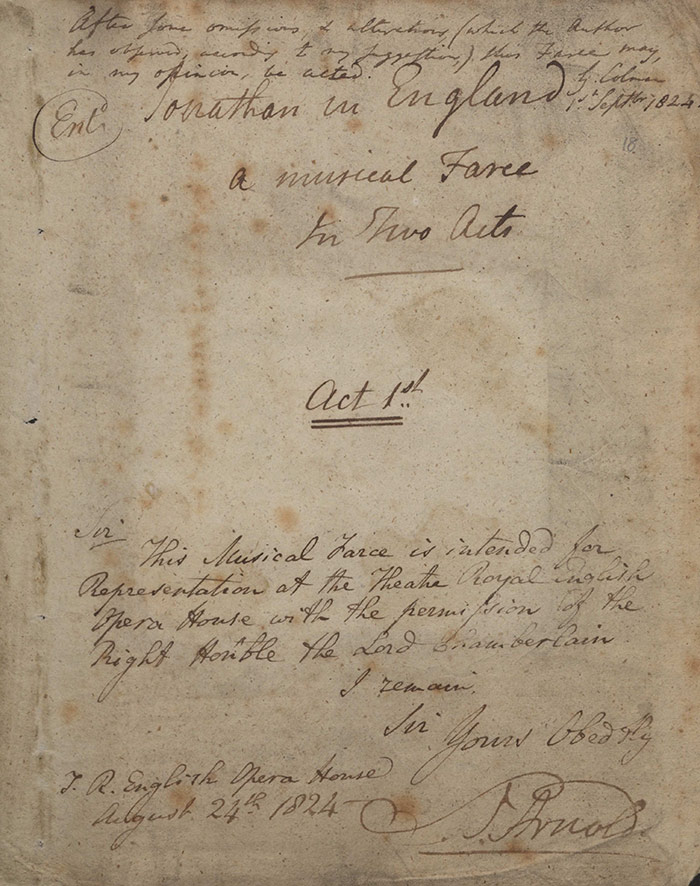 After some omissions, & alterations, (which the Author
has observed, according to my suggestion,) this Farce may,
in my opinion, be acted.
G. Colman
1st Septbr 1824.
Entd
Jonathan in England
18
a musical Farce
In Two Acts
Act 1st
Sir
This Musical Farce is intended for
Representation at the Theatre Royal English
Opera House with the permission of the
Right Honble the Lord Chamberlain
I remain,
Sir
Yours Obedtly
T. R. English Opera House
August 24th 1824
S. J. Arnold